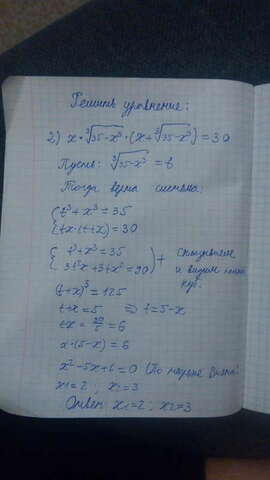 Решить уравнение:
2) x·∛(35-x³)·(x+∛(35-x³))=30
Пусть: ∛(35-x³)=t
Тогда
{t³+x³=35
{tx·(t+x)=30
{t³+x³=35
{3t²x+3tx²=90 } + складываем
и видим
куб.
(t+x)³=125
t+x=5 ⇒ t=5-x
tx=30/5=6
x·(5-x)=6
x²-5x+6=0 (По теореме Виета:
x₁=2; x₂=3
Ответ: x₁=2; x₂=3